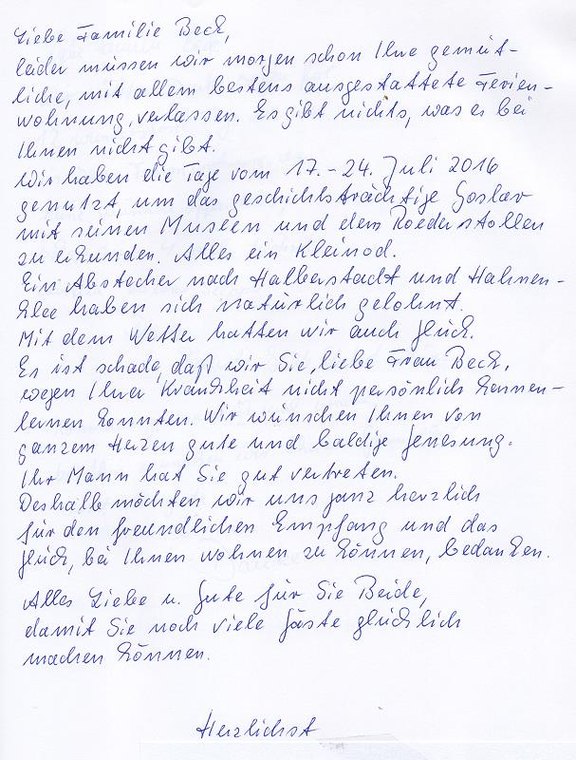 Liebe Familie Beck,
leider müssen wir morgen schon Ihre gemüt-
liche, mit allem bestens ausgestattete Ferien-
wohnung, verlassen. Es gibt nichts, was es bei
Ihnen nicht gibt.
Wir haben die Tage vom 17. - 24. Juli 2016
genutzt, um das geschichtsträchtige Goslar
mit seinen Museen und dem Roederstollen
zu erkunden. Alles ein Kleinod.
Ein Abstecher nach Halberstadt und Hahnen-
klee haben sich natürlich gelohnt.
Mit dem Wetter hatten wir auch Glück.
Es ist schade, daß wir Sie, liebe Frau Beck,
wegen Ihrer Krankheit nicht persönlich kennen-
lernen konnten. Wir wünschen Ihnen von
ganzem Herzen gute und baldige Genesung.
Ihr Mann hat Sie gut vertreten.
Deshalb möchten wir uns ganz herzlich
für den freundlichen Empfang und das
Glück, bei Ihnen wohnen zu können, bedanken.
Alles Liebe u. Gute für Sie Beide,
damit Sie noch viele Gäste glücklich
machen können.
Herzlichst